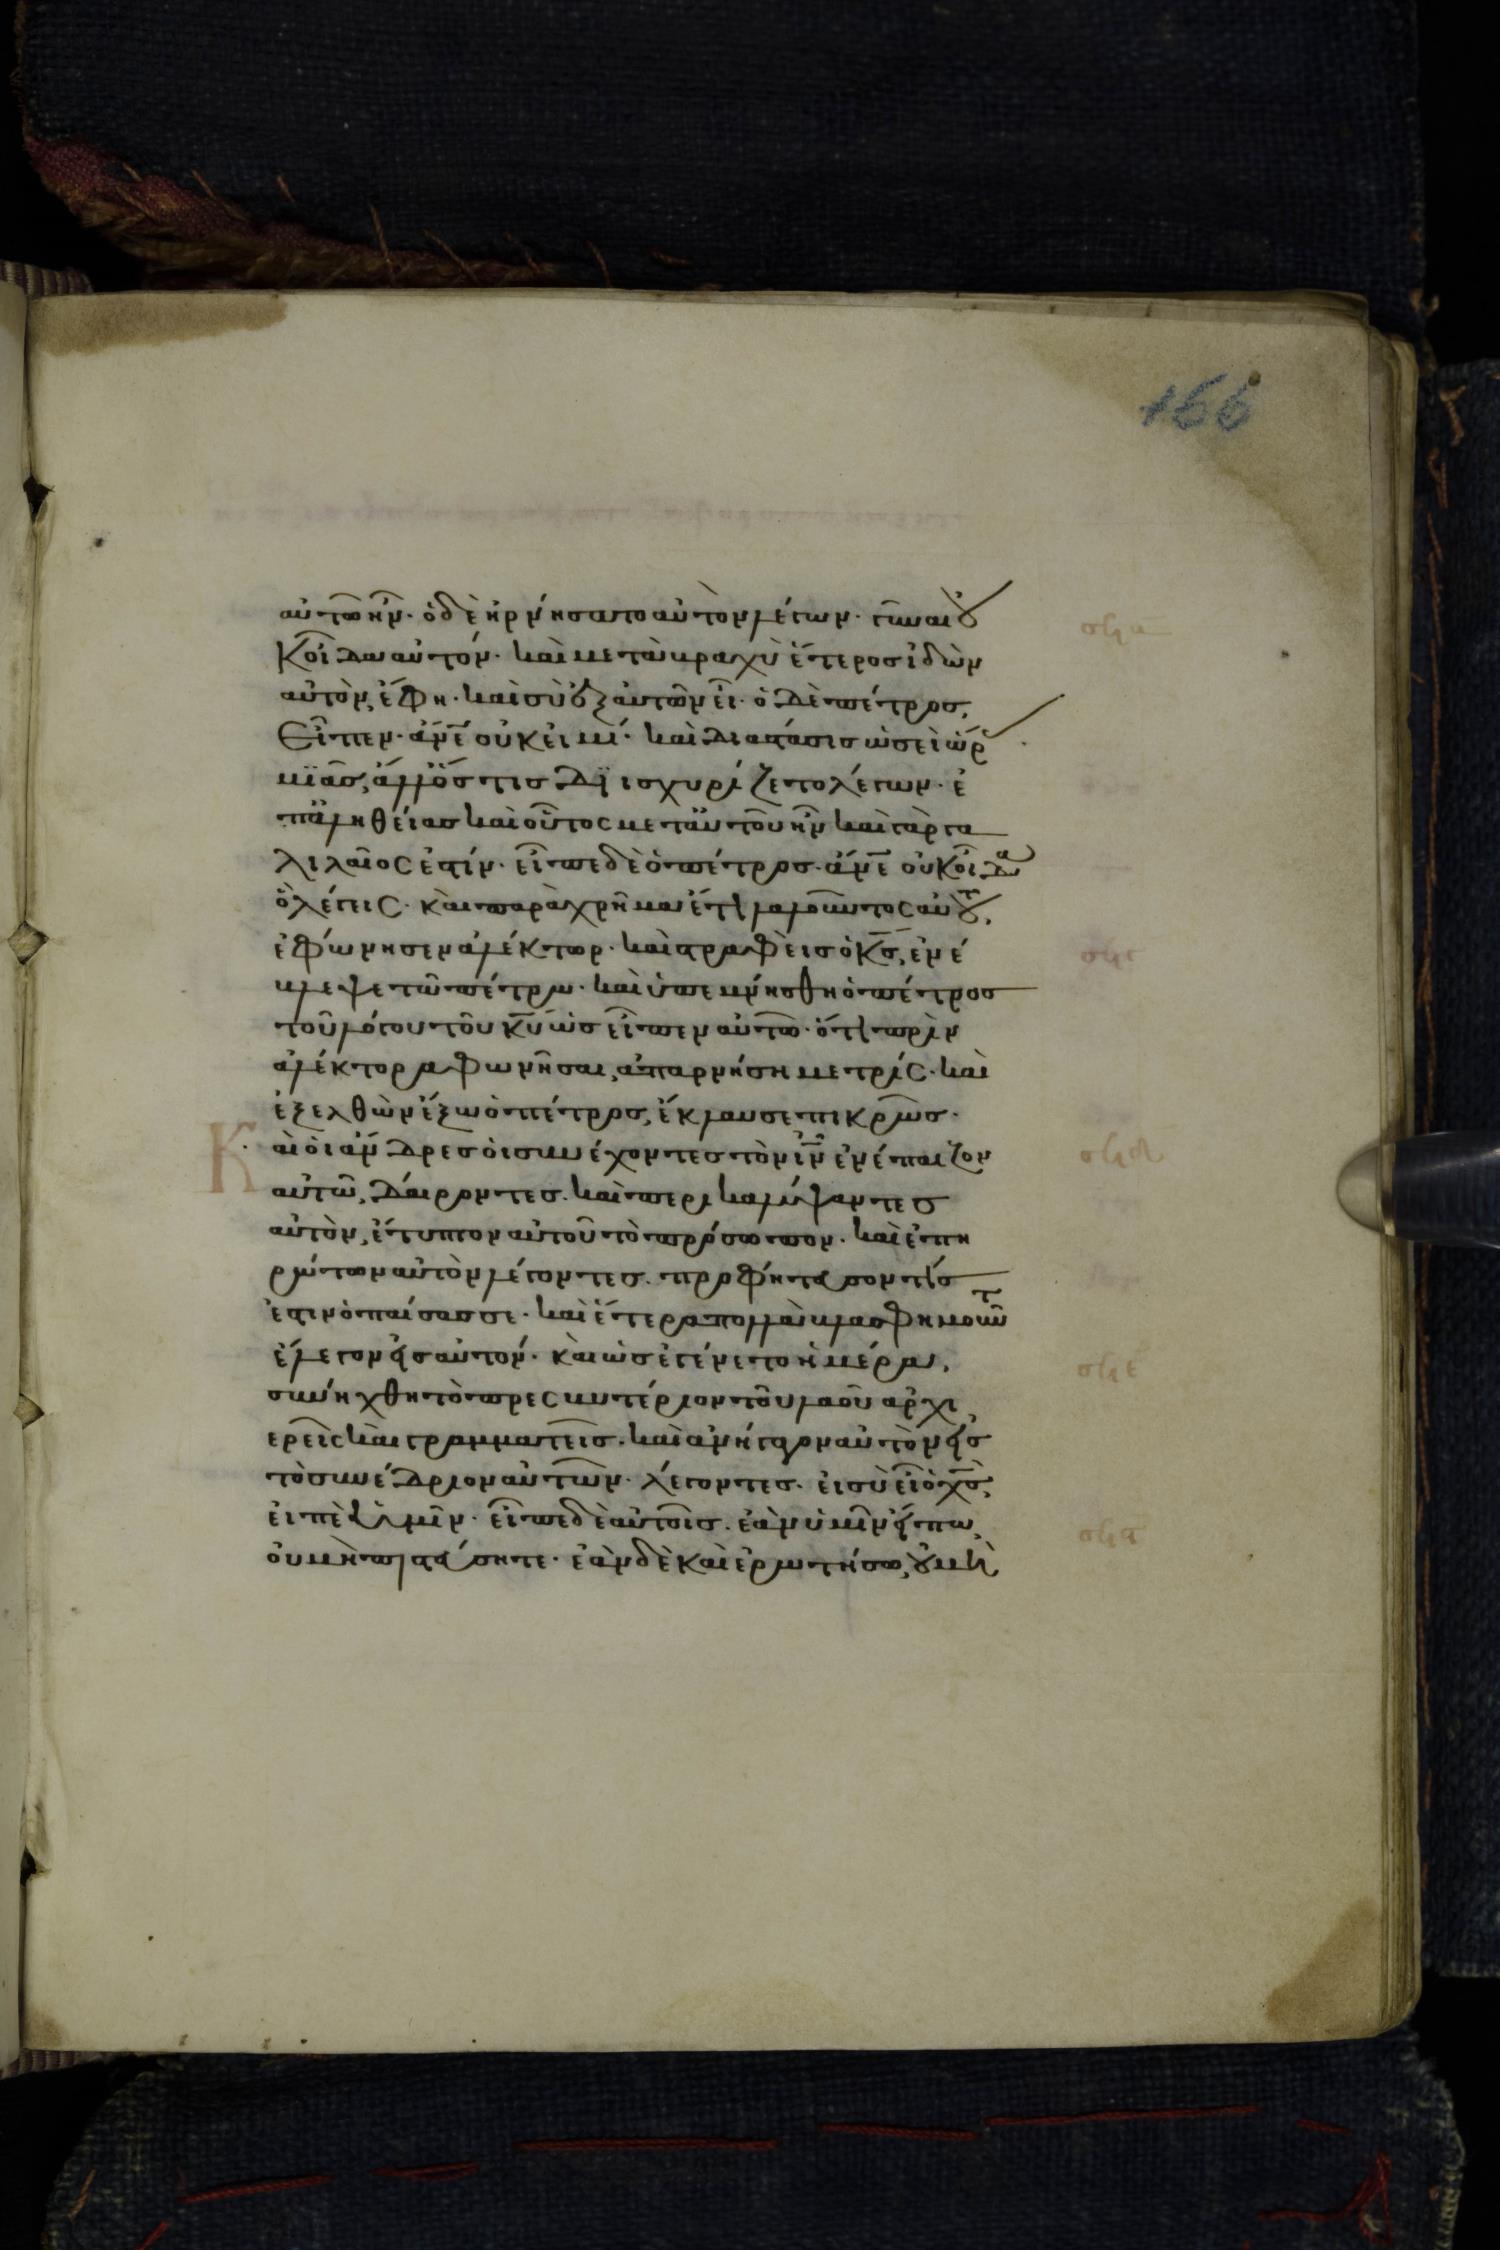 166
αὐτῶ ἦν· ὁ δὲ ἠρνήσατο αὐτὸν λέγων· γύναι οὐ
κ οἶδα αὐτόν· καὶ μετὰ βραχὺ ἕτερος ἰδὼν
αὐτὸν, ἔφη· καὶ σὺ ἐξ αὐτῶν εἶ· ὁ δὲ πέτρος,
εἶπεν· ἄν̅ε̅ οὐκ εἰμί· καὶ διαστάσις ὡσεὶ ὥρ
μϊᾶς, ἄλλος τις δϊισχυρίζετο λέγων· ἐ
π ἀληθείας καὶ οὗτος μετ αὐτοῦ ἦν καὶ γὰρ γα
λιλαῖος ἐστίν· εἶπε δὲ ὁ πέτρος· ἄν̅ε̅ οὐκ οἶδα
ὃ λέγεις· καὶ παραχρῆμα ἔτι λαλοῦντος αὐτοῦ,
ἐφώνησεν ἀλέκτωρ· καὶ στραφεὶς ὁ κ̅ς̅, ἐνέ
βλεψε τῶ πέτρω· καὶ ὑπεμνήσθη ὁ πέτρος
τοῦ λόγου τοῦ κ̅υ̅ ὡς εἶπεν αὐτῶ· ὅτι πρὶν
ἀλέκτορα φωνῆσαι, ἀπαρνήση με τρίς· καὶ
ἐξελθὼν ἔξω ὁ πέτρος, ἔκλαυσε πικρῶς·
Καὶ οἱ ἄνδρες οἱ συνέχοντες τὸν ι̅ν̅ ἐνέπαιζον
αὐτῶ, δαίροντες· καὶ περικαλύψαντες
αὐτὸν, ἔτυπτον αὐτοῦ τὸ πρόσωπον· καὶ ἐπη
ρώτων αὐτὸν λέγοντες· προφήτευσον τίς
ἐστιν ὁ παίσας σε· καὶ ἕτερα πολλὰ βλασφημοῦντ
ἔλεγον εἰς αὐτόν· καὶ ὡς ἐγένετο ἡμέρα,
συνήχθη τὸ πρεσβυτέριον τοῦ λαοῦ ἀρχι
ερεῖς καὶ γραμματεῖς· καὶ ἀνήγαγον αὐτὸν εἰς
τὸ συνέδριον αὐτῶν· λέγοντες· εἰ σὺ εἶ ὁ χ̅ς̅,
εἰπὲ ἡμῖν· εἶπε δὲ αὐτοῖς· ἐὰν ὑμῖν εἴπω,
οὐ μὴ πιστεύσητε· ἐὰν δὲ καὶ ἐρωτήσω, οὐ μὴ